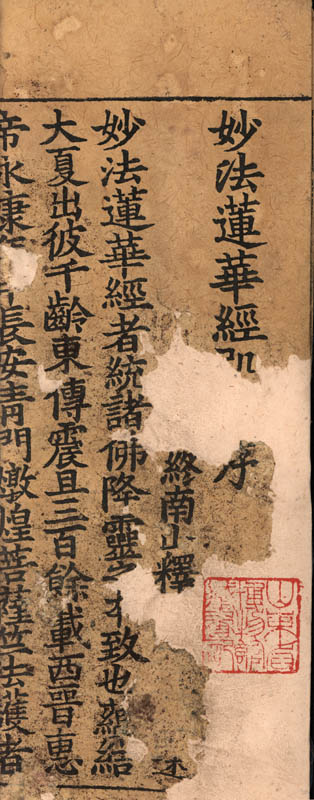 妙法蓮華經 序
終南山釋 述
妙法蓮華經者統諸佛降靈之本致也蘊結
大夏出彼千齡東傳震旦三百餘載西晉惠
帝永康 長安青門燉煌菩薩竺法護者
山東省
博物館